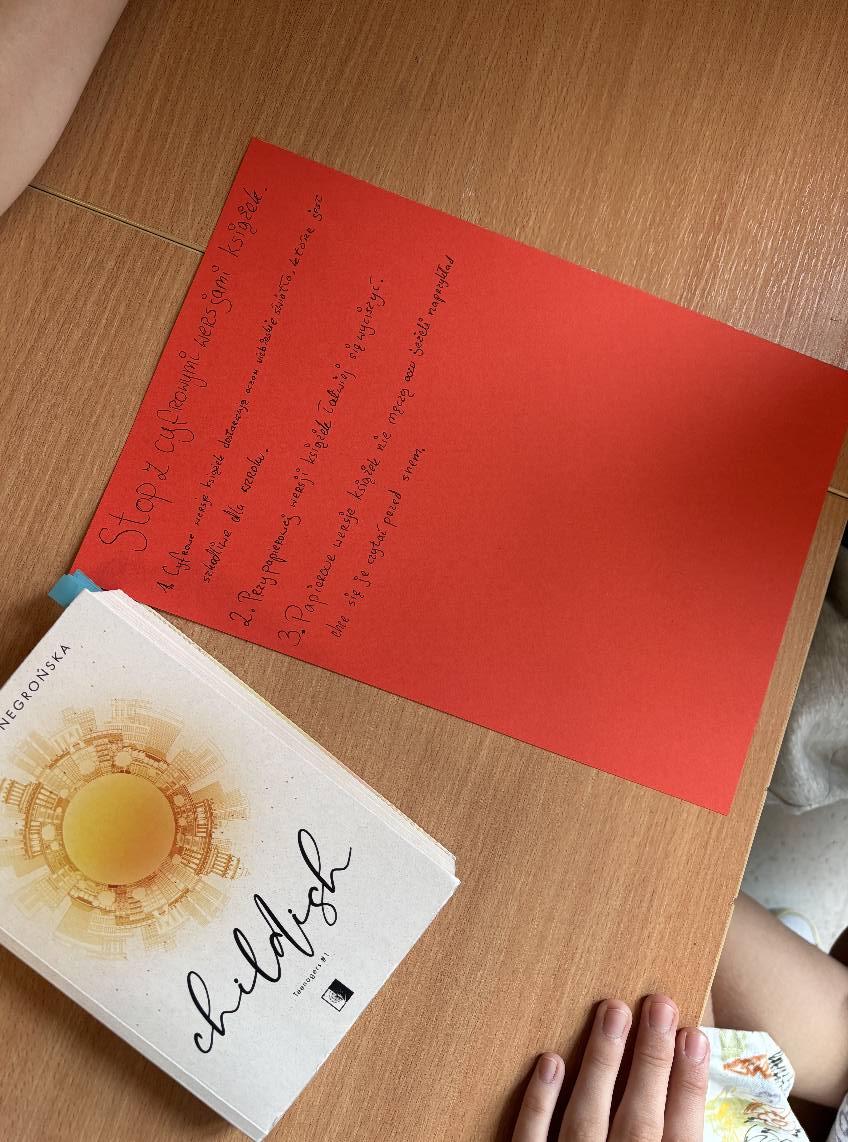 Stop z cyfrowymi wersjami książek.
1. Cyfrowe wersje książek dostarczają oczom niebieskie światło, które jest
szkodliwe dla wzroku.
2. Przy papierowej wersji książek łatwiej się wyciszyć.
3. Papierowe wersje książek nie męczą oczu jeżeli naprzykład
chce się je czytać przed snem.
NEGROŃSKA
childish
Teenagers #1